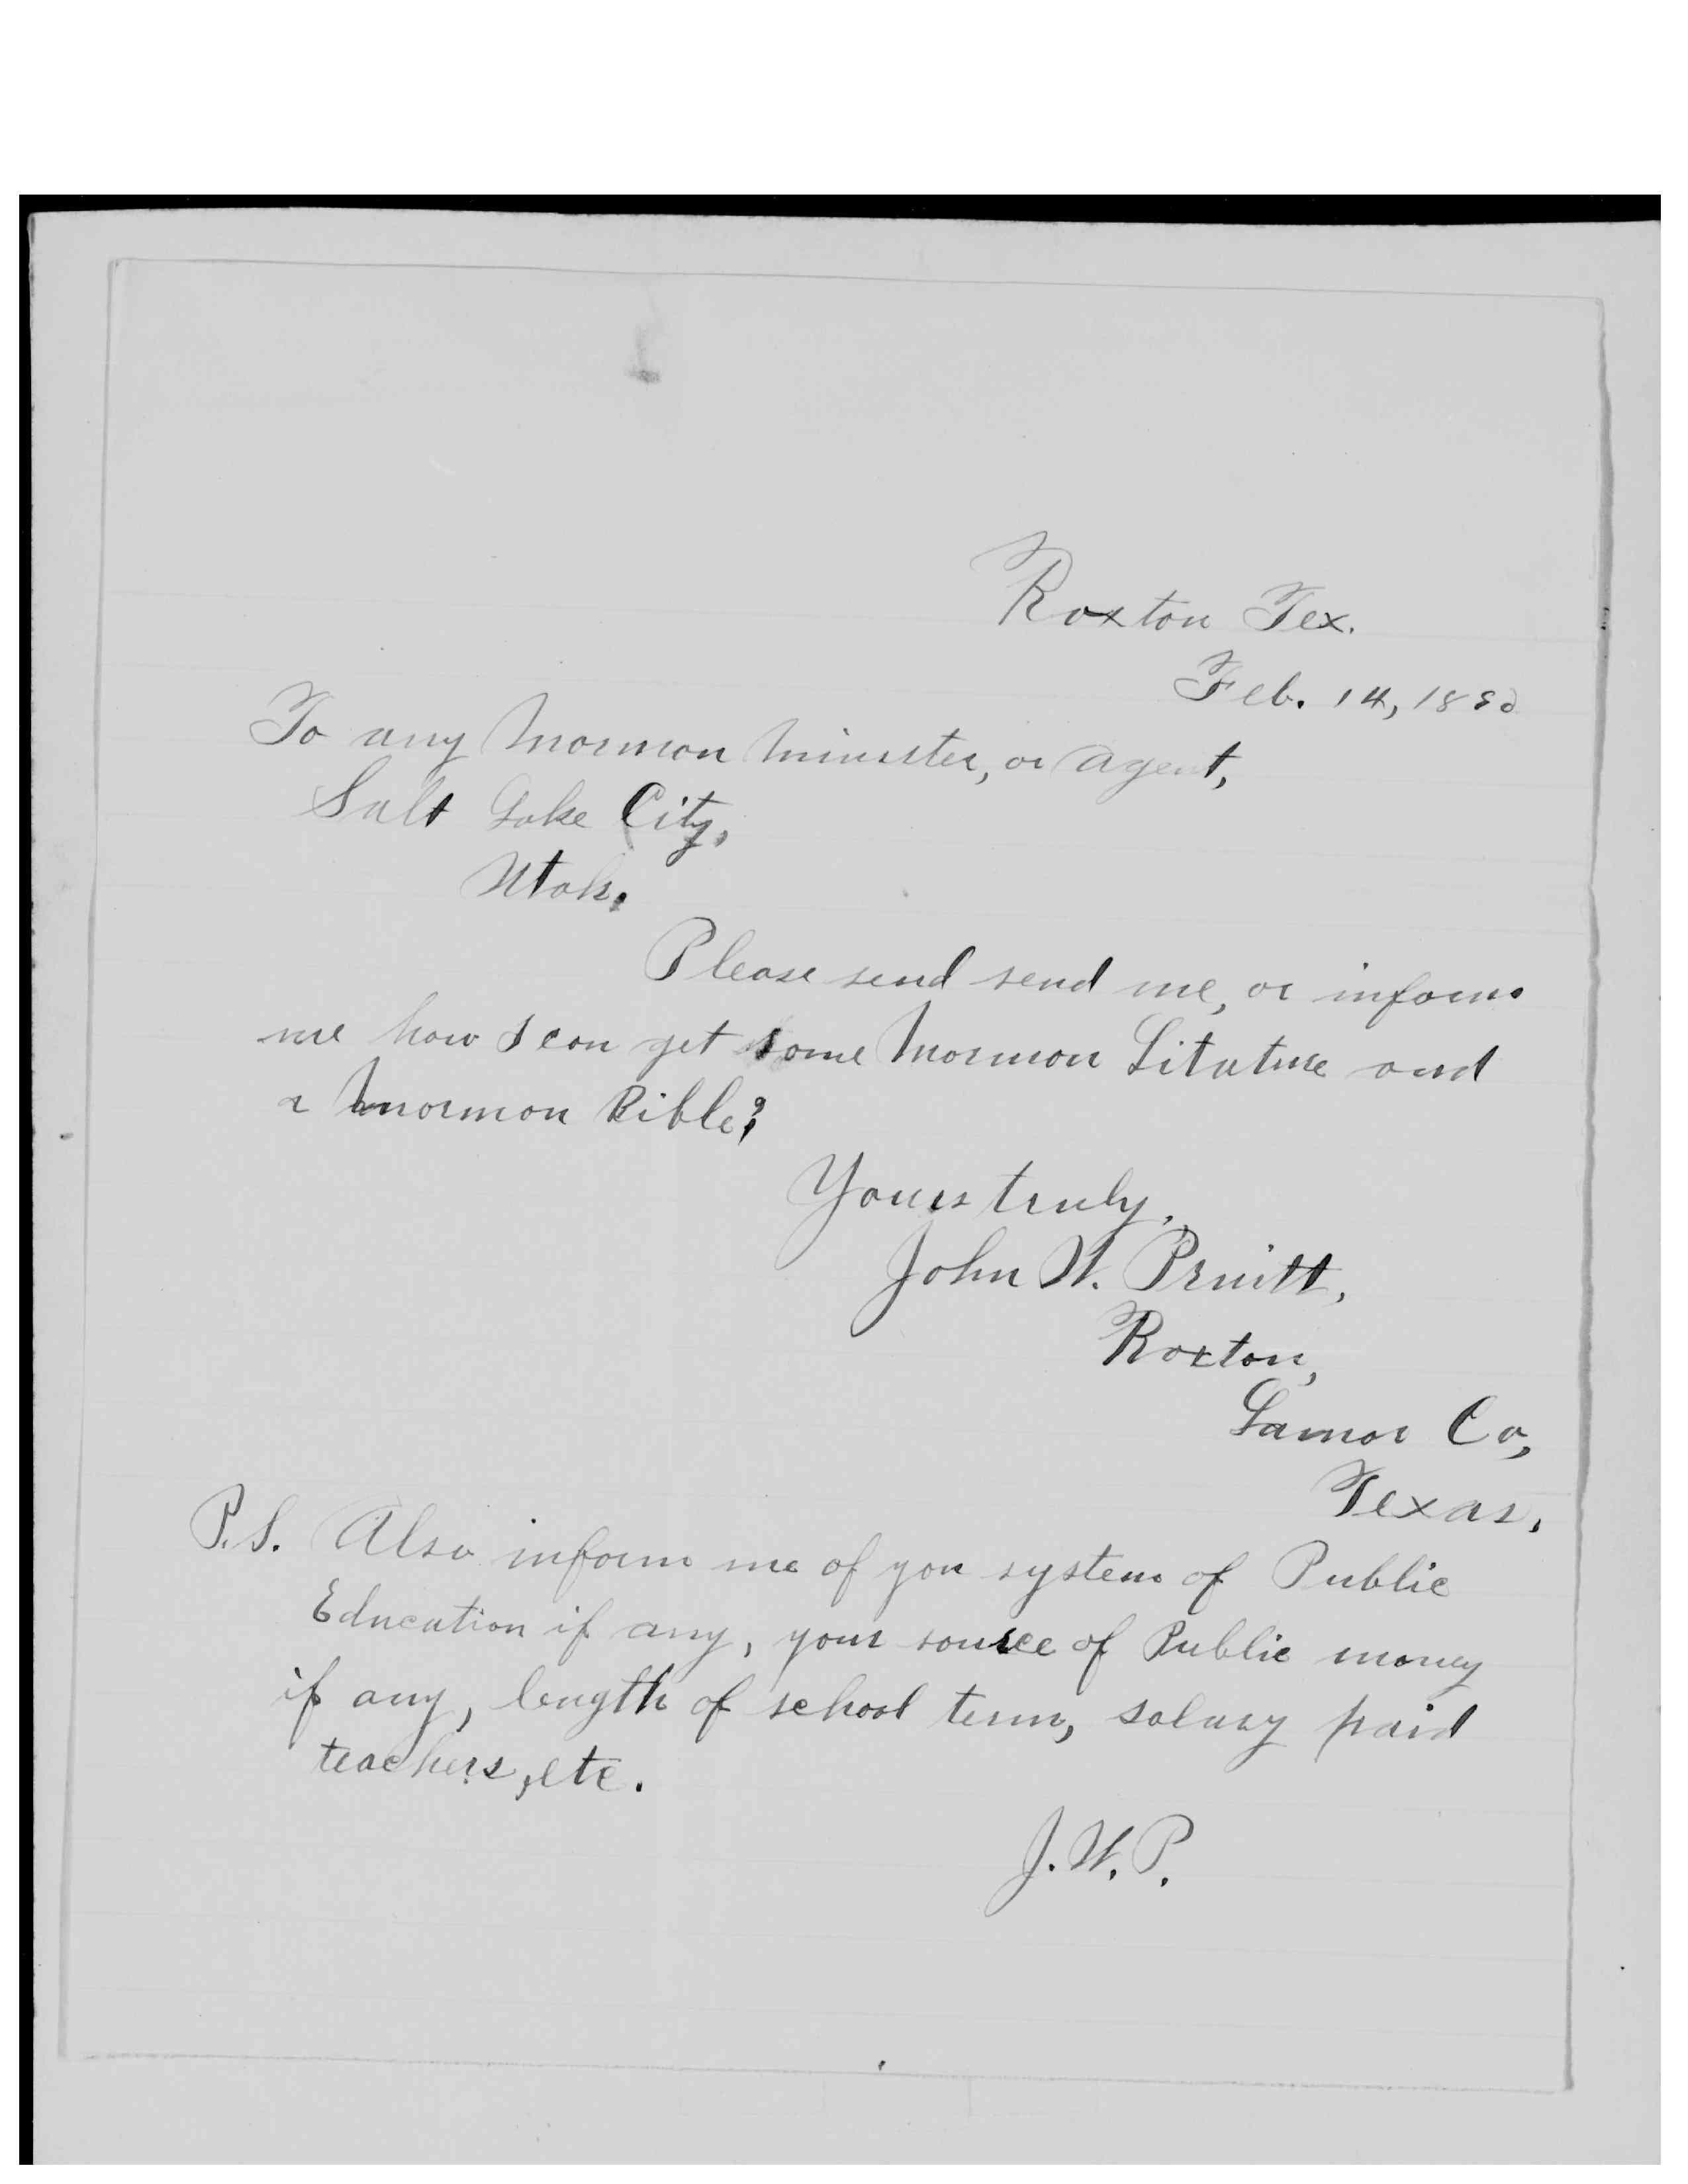 Roxton Tex.
Feb. 14, 18
To any Mormon Minister, or Agent,
Salt Lake City,
Utah.
Please send send me, or inform
me how I can get some Mormon Litature and
a Mormon Bible?
Yours truly,
John W. Pruitt,
Roxton,
Lamar Co,
Texas.
P.S. Also inform me of you system of Public
Education if any, your source of Public money
if any, length of school term, salary paid
teachers, etc.
J.W.P.